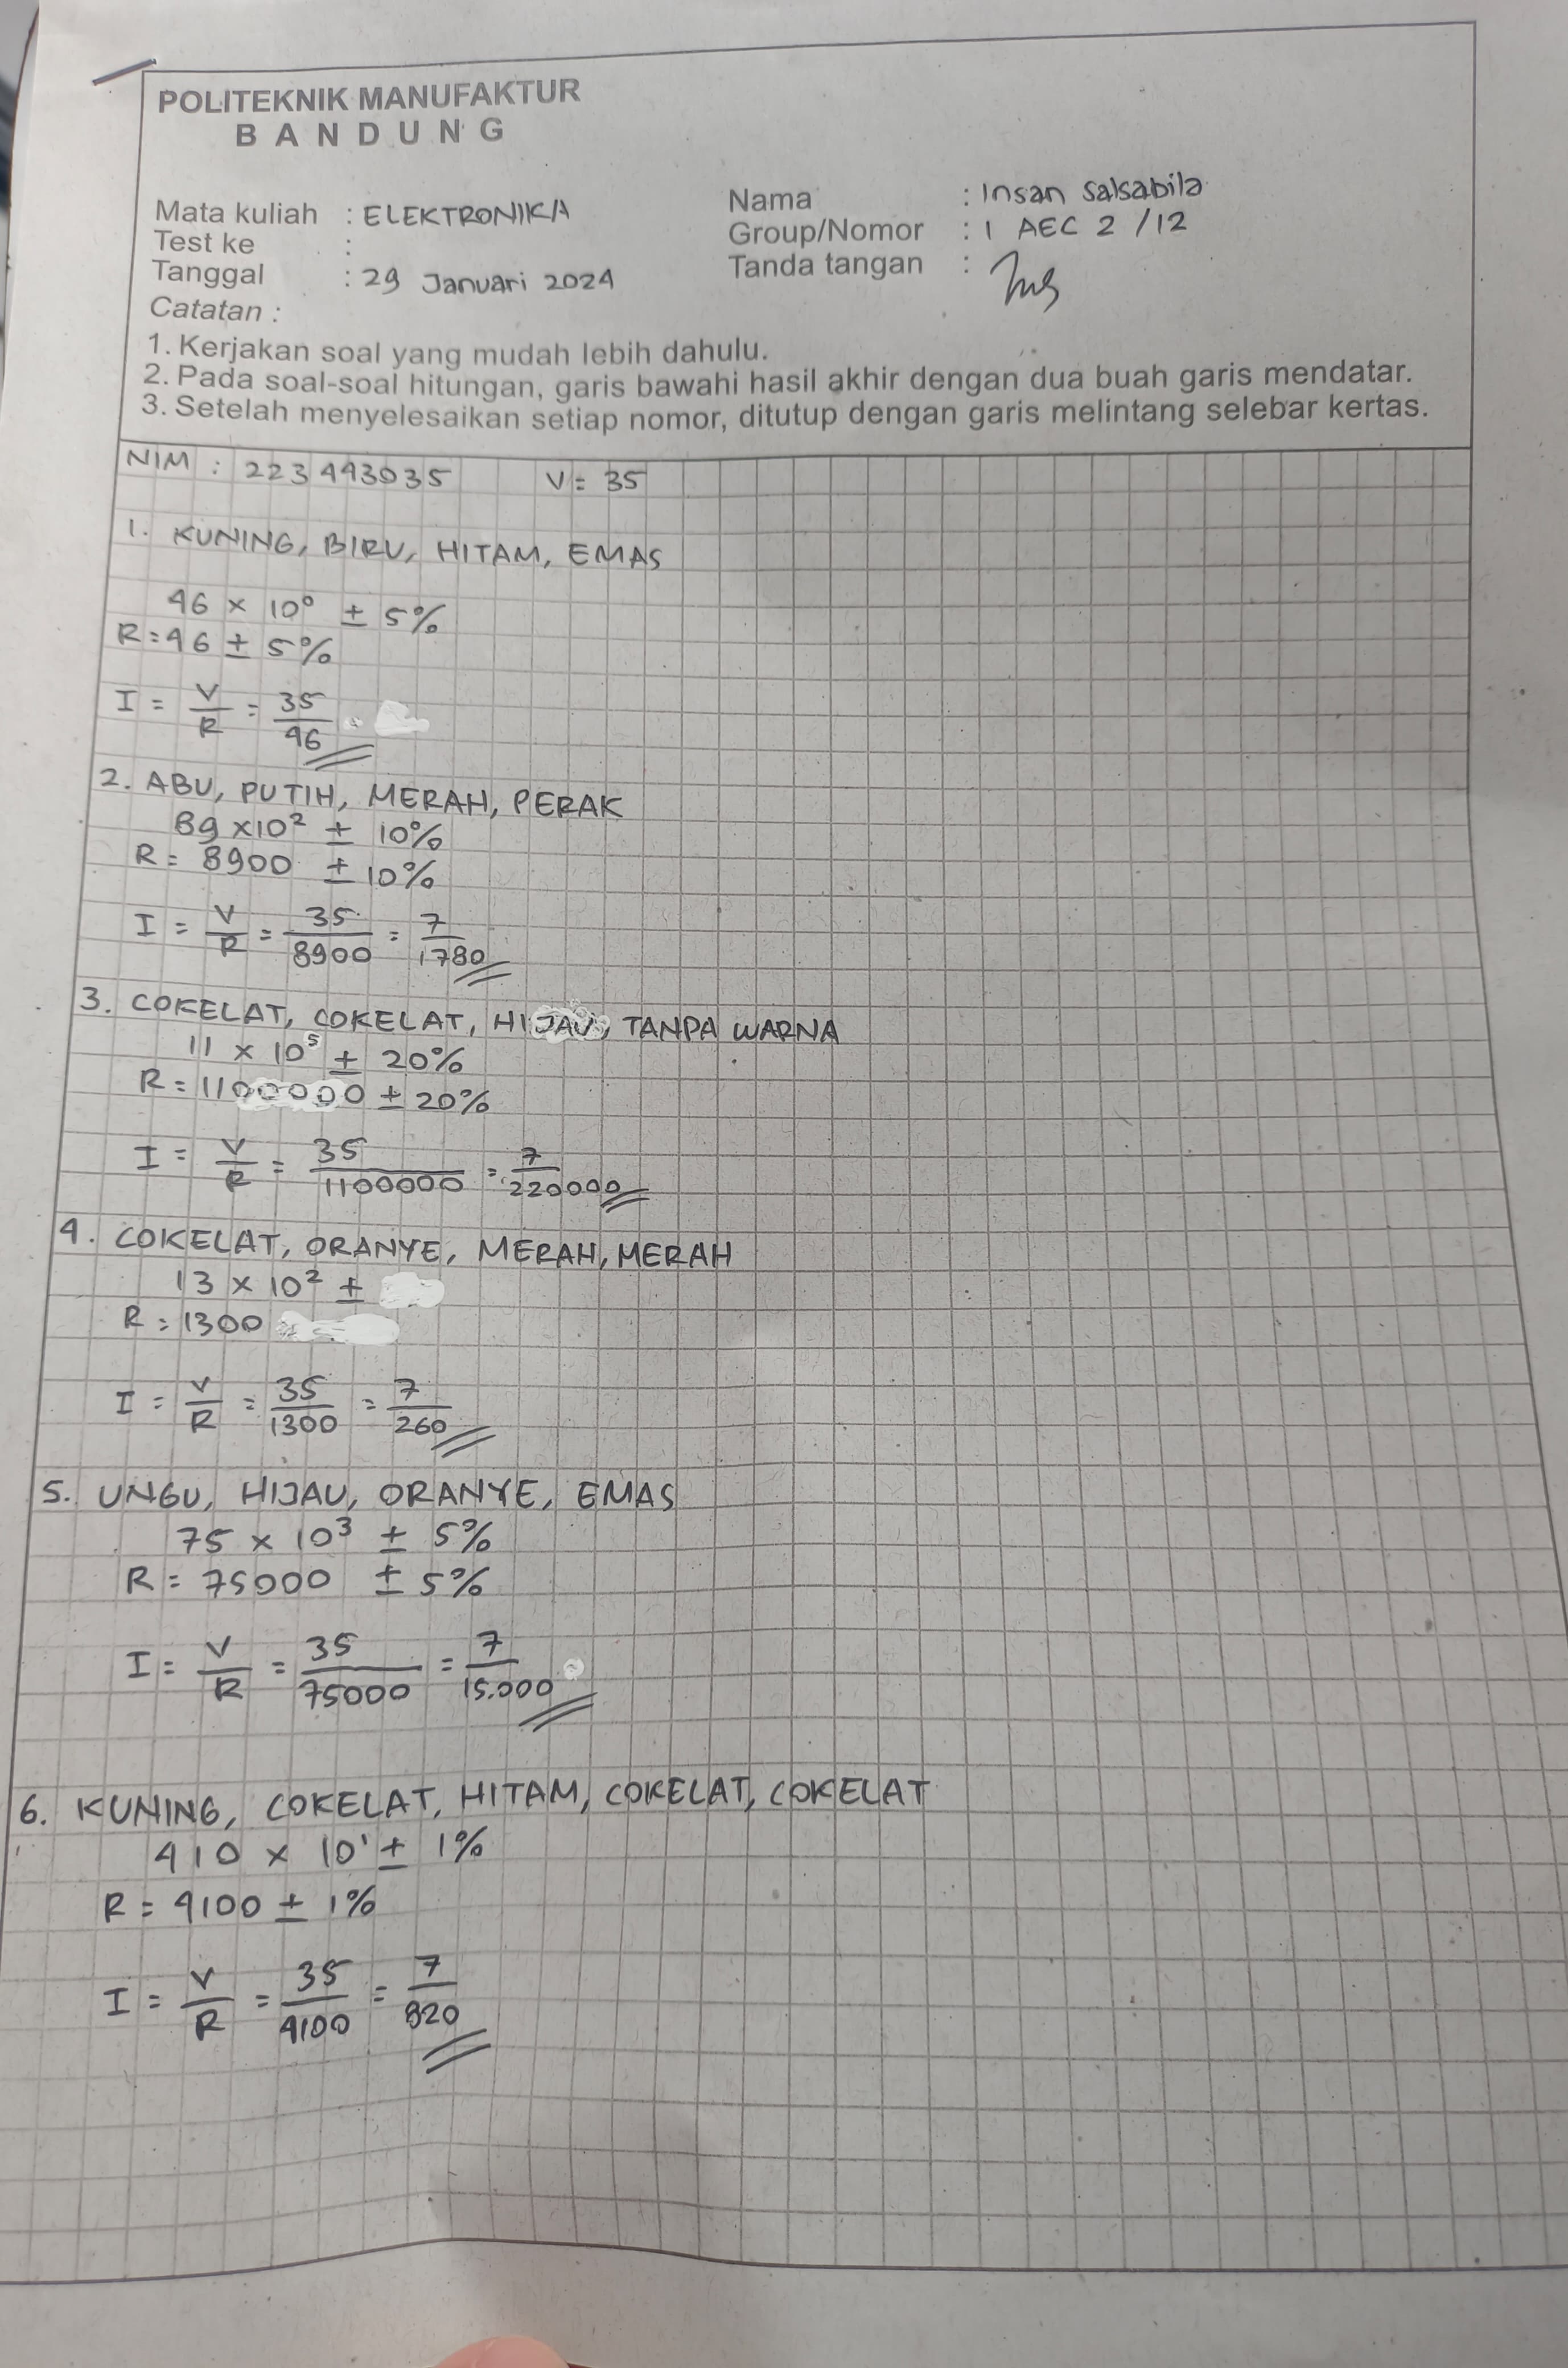 POLITEKNIK MANUFAKTUR
BANDUNG
Mata kuliah : ELEKTRONIKA
Test ke :
Tanggal : 29 Januari 2024
Nama : Insan Salsabila
Group/Nomor : 1 AEC 2 /12
Tanda tangan :
Catatan :
1. Kerjakan soal yang mudah lebih dahulu.
2. Pada soal-soal hitungan, garis bawahi hasil akhir dengan dua buah garis mendatar.
3. Setelah menyelesaikan setiap nomor, ditutup dengan garis melintang selebar kertas.
NIM : 223443035 V = 35
1. KUNING, BIRU, HITAM, EMAS
46 × 10⁰ ± 5%
R = 46 ± 5%
I = V/R = 35/46
2. ABU, PUTIH, MERAH, PERAK
89 × 10² ± 10%
R = 8900 ± 10%
I = V/R = 35/8900 = 7/1780
3. COKELAT, COKELAT, HIJAU, TANPA WARNA
11 × 10⁵ ± 20%
R = 1100000 ± 20%
I = V/R = 35/1100000 = 7/220000
4. COKELAT, ORANYE, MERAH, MERAH
13 × 10² ±
R = 1300
I = V/R = 35/1300 = 7/260
5. UNGU, HIJAU, ORANYE, EMAS
75 × 10³ ± 5%
R = 75000 ± 5%
I = V/R = 35/75000 = 7/15.000
6. KUNING, COKELAT, HITAM, COKELAT, COKELAT
410 × 10¹ ± 1%
R = 4100 ± 1%
I = V/R = 35/4100 = 7/820